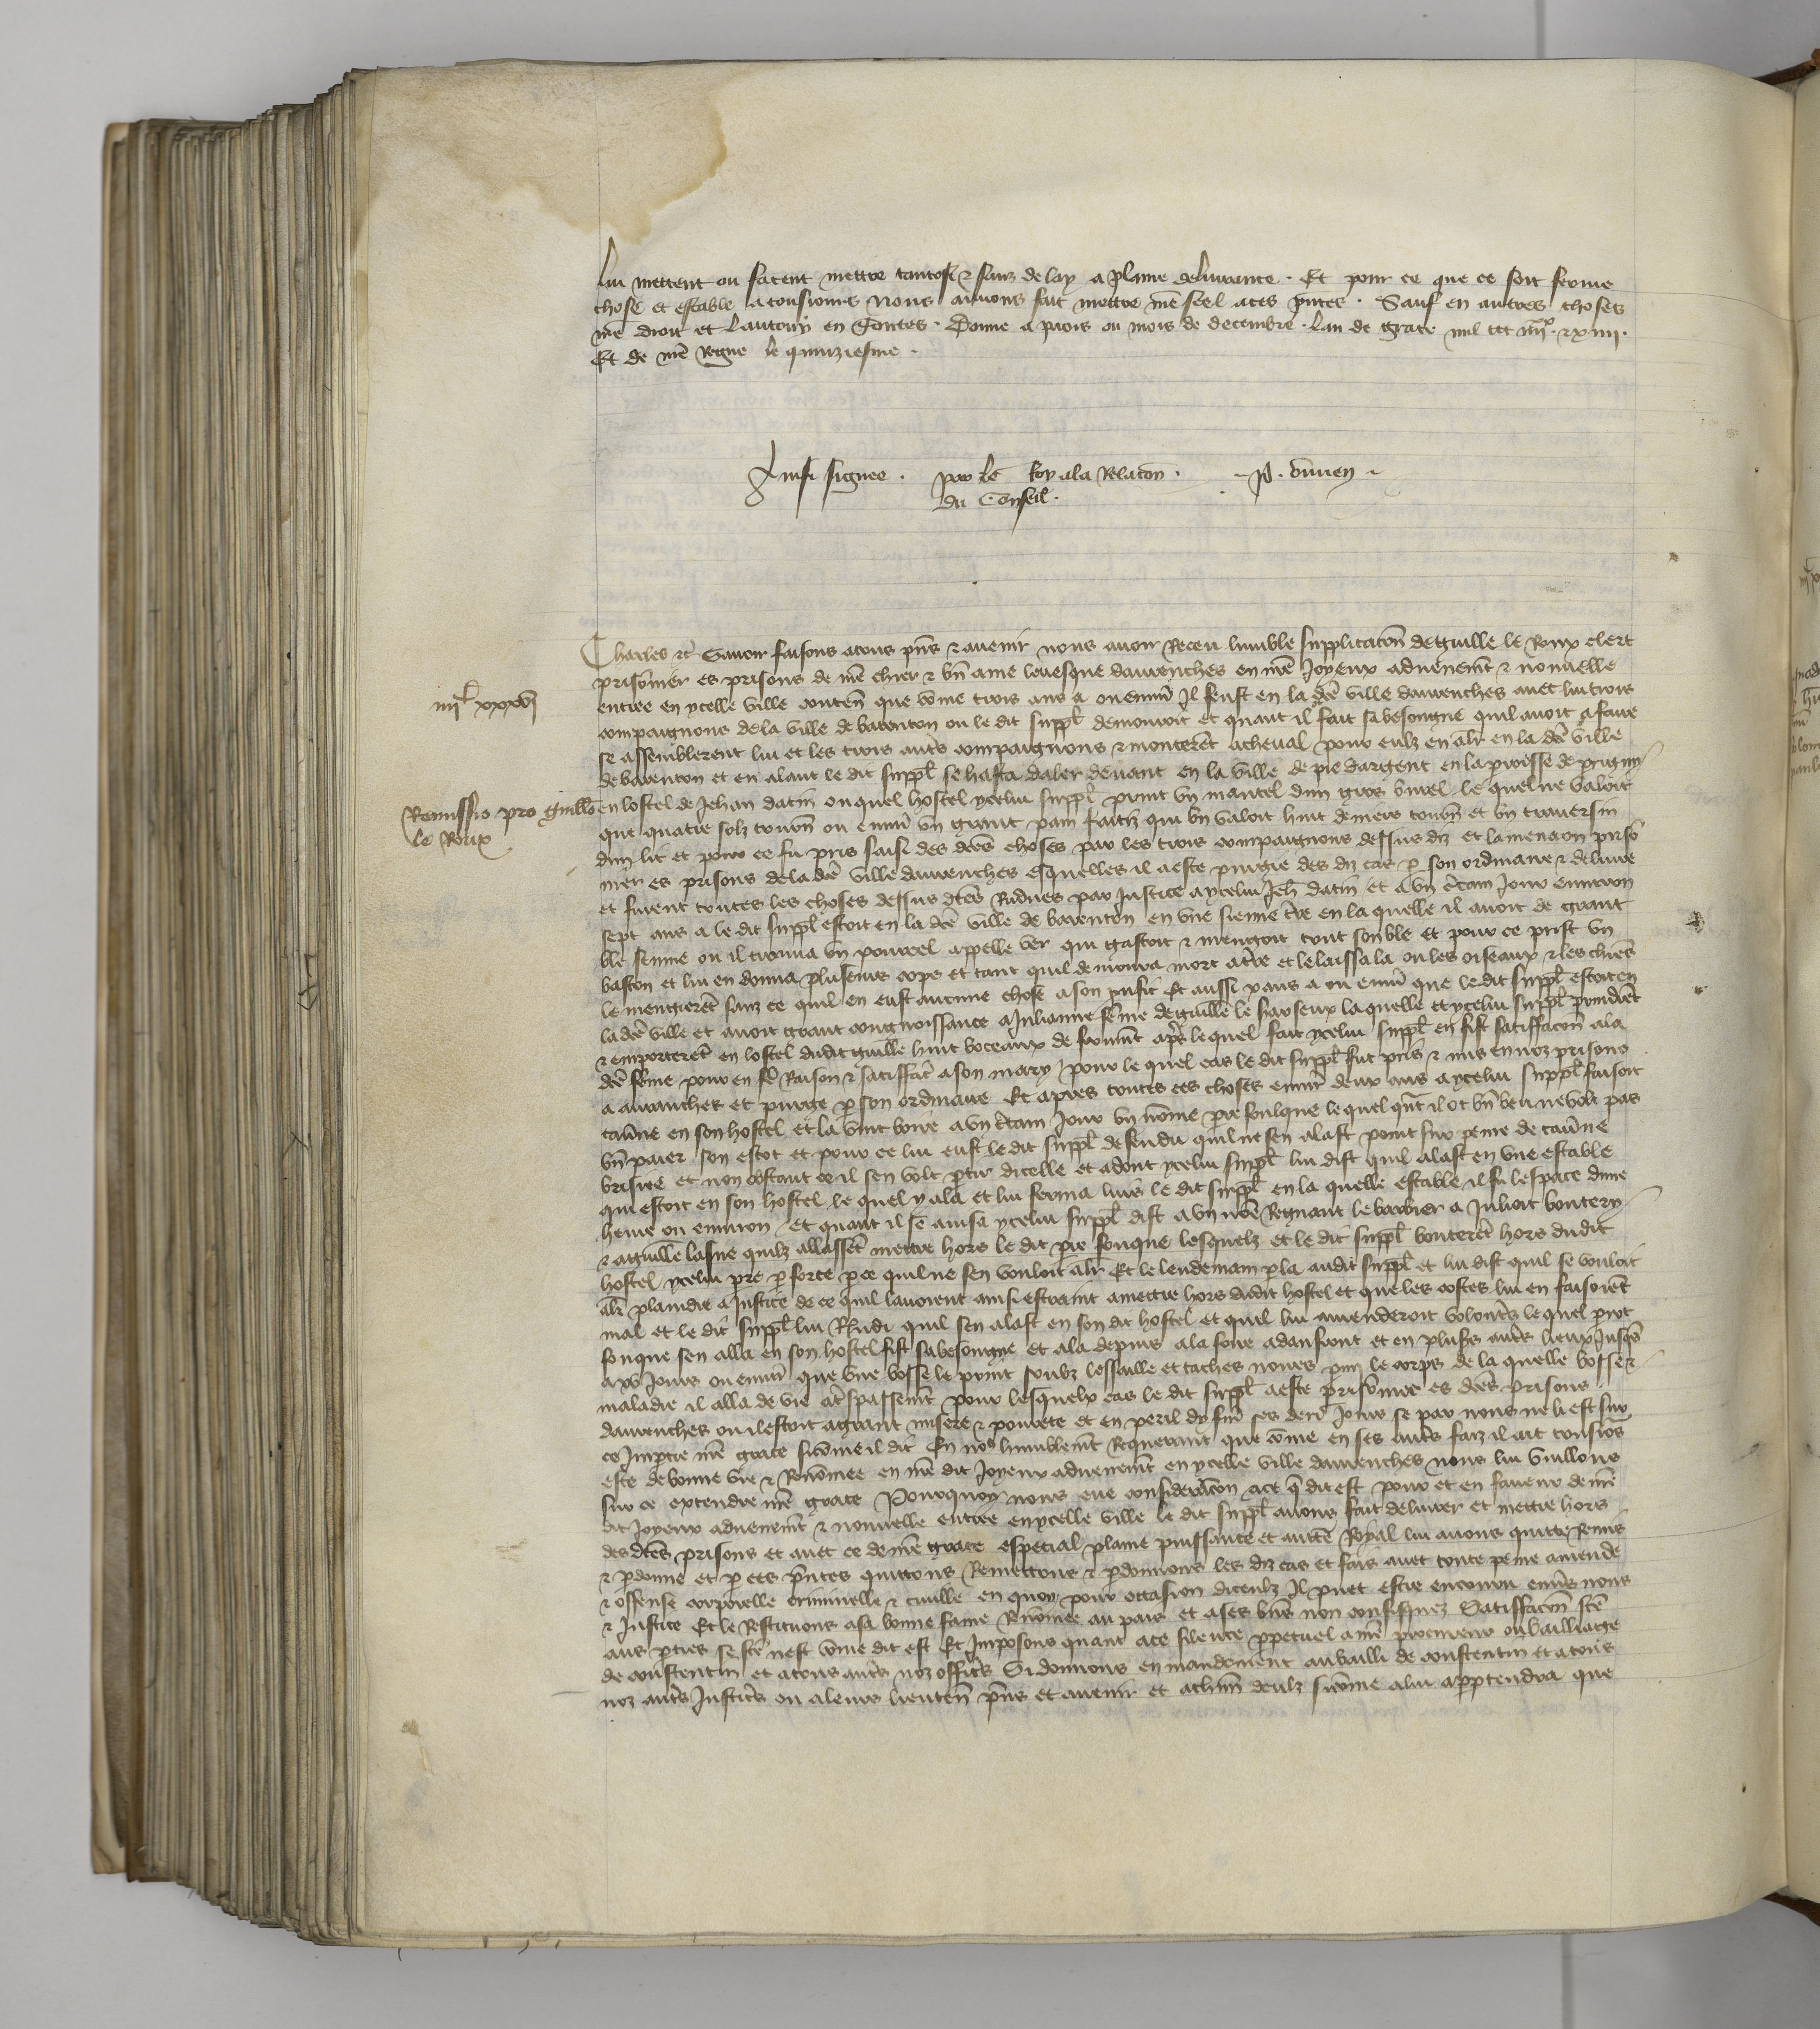 lui mettent ou facent mettre tantost & sanz delay a plaine delivrance . Et pour ce que ce soit ferme
chose et estable a tousiours nous avons fait mettre nre seel a ces pntes . Sauf en autres choses
nre droit et lautruy en toutes . Donne a Paris ou mois de decembre . lan de grace mil ccc iiiixx & xiiii .
Et de nre Regne le quinziesme .
Ainsi signee . par le Roy a la Relacon .
du Conseil .
iiiic xxxvi
Remissio pro Guillo
le Roux
Charles &c Savoir faisons a tous pns & avenir nous avoir Receu lumble supplicacon de Guille le Roux clert
prisonnier es prisons de nre chier & bn ame levesque davrenches en nre Joyeux advenemt & nouvelle
entree en ycelle ville conten que come trois ans a ou environ Il feust en la dce ville davrenches avec lui trois
compaignons de la ville de barenton ou le dit suppl demouroit et quant il fait sa besongne quil avoit a faire
se assemblerent lui et les trois auts compaignons & monterent a cheval pour eulz en aler en la dce ville
de barenton et en alant le dit suppl se hasta daler devant en la ville de pie dargent en la proisse de
en lostel de Jehan datin ou quel hostel ycelui suppl print un mantel dun gros burel le quel ne valoit
que quatre solz tourn ou environ un grant pain faitiz qui bn valoit huit deniers tourn et un traversin
dun lit et pour ce fu pris saisi des dces choses par les trois compaignons dessus diz et lamenerent prison
nier es prisons de la dce ville davrenches esquelles il a este purgie des diz cas p son ordinaire & delivre
et furent toutes les choses dessus dtes Rendues par Justice a ycelui Jeh datin et a un ctain Jour environ
sept ans a le dit suppl estoit en la dce ville de barenton en une sienne tre en la quelle il avoit de grant
ble seme ou il trouva un pourcel appelle ver qui gastoit & mengoit tout son ble et pour ce prist un
baston et lui en donna plusieurs cops et tant quil demoura mort a tre et le laissa la ou les oiseaux & les chiens
le mengierent sanz ce quil en eust aucune chose a son pufit Et aussi x ans a ou environ que le dit suppl estoit en
la dce ville et avoit grant congnoissance a Julianne feme de Guille le la quelle et ycelui suppl prindrent
& emporterent en lostel dudit Guille huit boceaux de froment aps lequel fait ycelui suppl en fist satisfacon a la
dce feme pour en fe Raison & satisfacc a son mary pour le quel cas le dit suppl fut pris & mis en noz prisons
a avranches et purge p son ordinaire Et apres toutes ces choses environ deux ans a ycelui suppl faisoit
taverne en son hostel et la vint boire a un ctain Jour un nome pre foulque le quel qnt il ot bn beu ne volt pas
bn paier son escot et pour ce lui eust le dit suppl defendu quil ne sen alast point sur peine de taverne
brisiee et non obstant ce il sen volt ptir dicelle et adont ycelui suppl lui dist quil alast en une estable
qui estoit en son hostel le quel y ala et lui ferma luis le dit suppl en la quelle estable il fu lespace dune
heure ou environ et quant il se avisa ycelui suppl dist a un nome Regnaut le barbier a Juliot
& a Guille lasne quilz allassent mettre hors le dit pre fouque lesquelz et le dit suppl bouterent hors dudit
hostel ycelui pre p force p ce quil ne sen vouloit aler Et le lendemain pla audit suppl et lui dist quil se vouloit
aler plaindre a Justice de ce quil lavoient ainsi estraint a mettre hors dudit hostel et que les costes lui en faisoient
mal et le dit suppl lui Rndi quil sen alast en son dit hostel et quil lui amenderoit volontrs le quel prot
fouque sen alla en son hostel fist sa besongne et ala depuis a la foire a danfront et en pluss auts lieux Jusqs
a xv Jours ou environ que une bosse le print soubz lessaille et taches noires pmi le corps de la quelle bosse &
maladie il alla de vie a trespassement pour lesquelx cas le dit suppl a este prisonnier es dces prisons
davrenches ou il estoit a grant misere & povrete et en peril dy finer ses dern Jours se par nous ne li est sur
ce Imptie nre grace sicome il dit En nos humblemt Requerant que come en ses auts faiz il ait tousios
este de bonne vie & Renomee en nre dit Joyeux advenemt en ycelle ville davrenches nous lui vuillons
sur ce extendre nre grace Pourquoy nous eue consideracon a ce q dit est pour et en faveur de nre
dit Joyeux advenemt & nouvelle entree en ycelle ville le dit suppl avons fait delivrer et mettre hors
des dtes prisons et avec ce de nre grace especial plaine puissance et aucte Royal lui avons quitte Remis
& pdonne et p ces pntes quittons Remettons & pdonnons les diz cas et fais avec toute peine amende
& offense corporelle criminelle & civille en quoy pour occasion diceulz Il puet estre encouru envs nous
& Justice Et le Restituons a sa bonne fame Renomee au pais et a ses bns non confisquez Satisfacon fce
aux pties se fce nest come dit est Et Imposons quant a ce silence ppetuel a nre procureur ou bailliage
de coustentin et a tous auts noz offics Si donnons en mandement au bailli de coustentin et a tous
noz auts Justics ou a leurs lieuten pns et avenir et a chun deulz sicome a lui apptendra que